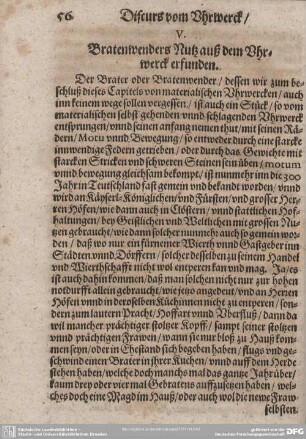 56 Discurs vom Vhrwerck /
V.
Bratenwenders Nutz auß dem Vhr-
werck erfunden.
Der Brater oder Bratenwender / dessen wir zum be-
schluß dieses Capitels von materialischen Vhrwercken / auch
inn keinem wege sollen vergessen / ist auch ein Stück / so vom
materialischen selbst gehenden vnnd schlagenden Vhrwerck
entsprungen / vnnd seinen anfang nemen thut / mit seinen Rä-
dern / Motu vnnd Bewegung / so entweder durch eine starcke
inwendige Federn getrieben / oder durch das Gewichte mit
starcken Stricken vnd schweren Steinen sein vben / motum
vnnd bewegung gleichsam bekompt / ist nunmehr inn die 300
Jahr in Teutschland fast gemein vnd bekandt worden / vnnd
wird an Käyserl: Königlichen / vnd Fürsten / vnd grosser Her-
ren Höfen / wie dann auch in Clöstern / vnnd stattlichen Hof-
haltungen / bey Geistlichen vnd Weltlichen mit grossen Nu-
tzen gebraucht / wie dann solcher nunmehr auch so gemein wor-
den / daß wo nur ein fürnemer Wierth vnnd Gastgeber inn
Städten vnnd Dörffern / solcher desselben zu seinem Handel
vnd Wierthschafft nicht wol enperen kan vnd mag. Ja / es
ist auch dahin kommen / daß man solchen nicht nur zur hohen
notdurfft allein gebraucht / wie jetzo angedeut / vnd an Herren
Höfen vnnd in deroselben Küchin nun nicht zu enperen / son-
dern zum lautern Pracht / Hoffart vnd Vberfluß / dann da
wil mancher prächtiger stoltzer Kopff / sampt seiner stoltzen
vnnd prächtigen Frawen / wann sie nur bloß zu Hauß kom-
men seyn / oder in Ehestand sich begeben haben / flugs vnd ge-
schwind einen Brater in jhrer Küchen / vnd auff dem Herde
stehen haben / welche doch manchs mal das gantze Jahr vber /
kaum drey oder vier mal Gebratens auffzusetzen haben / wel-
ches doch eine Magd im Hauß / oder auch wol die newe Fraw
selbsten